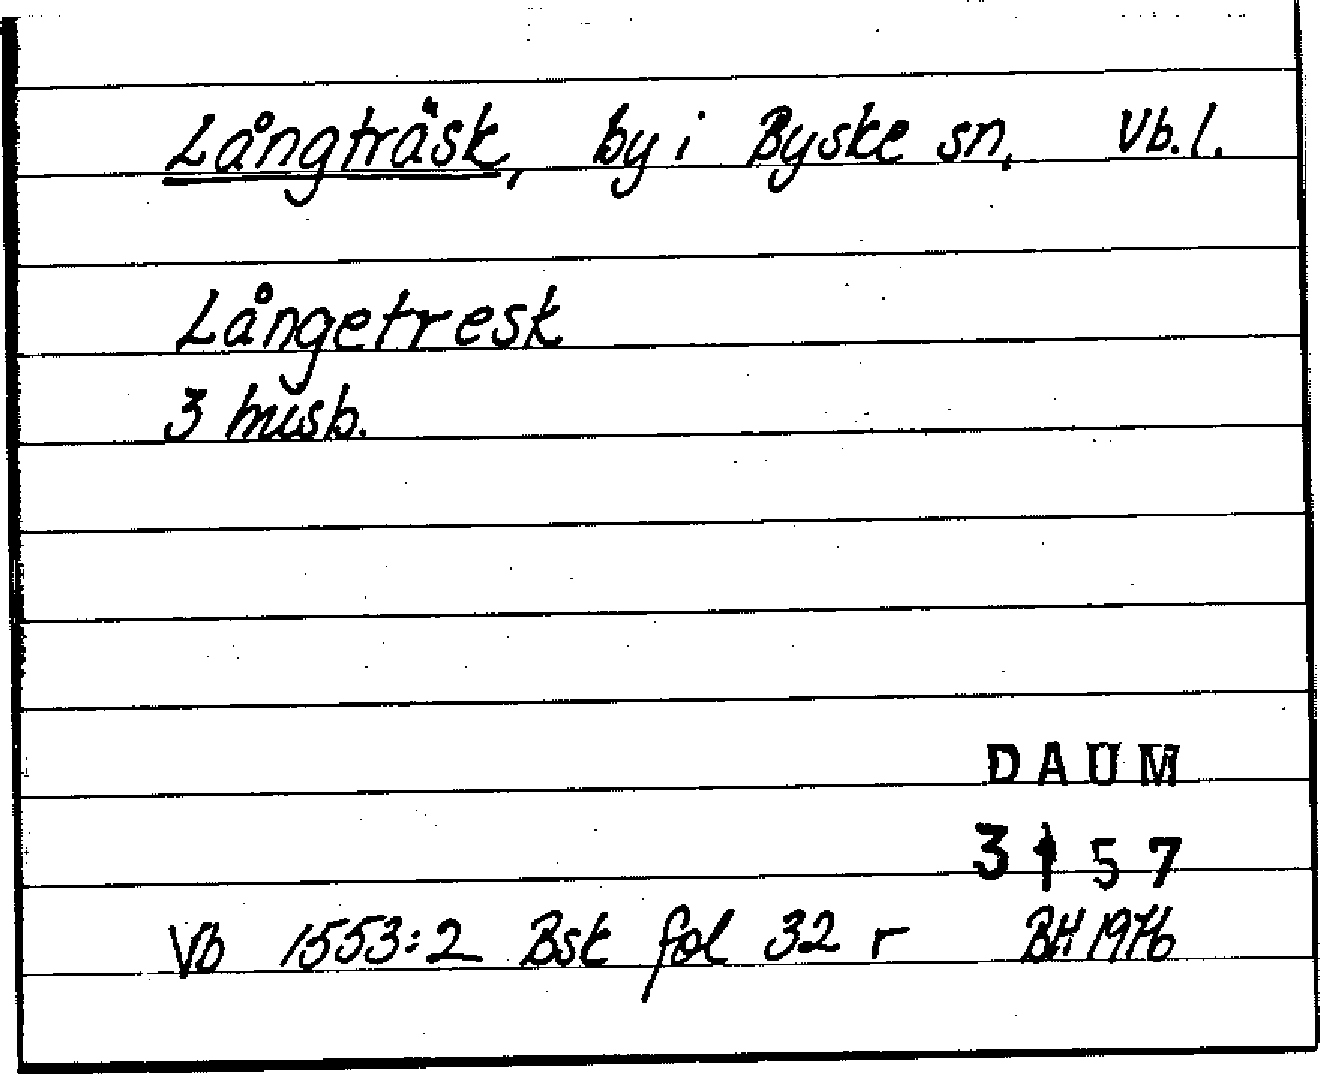 Långträsk, by i Byske sn, Vb.l.
Långetresk
3 husb.
DAUM
3157
Vb 1553:2 Bsk fol 32 r BH 1976